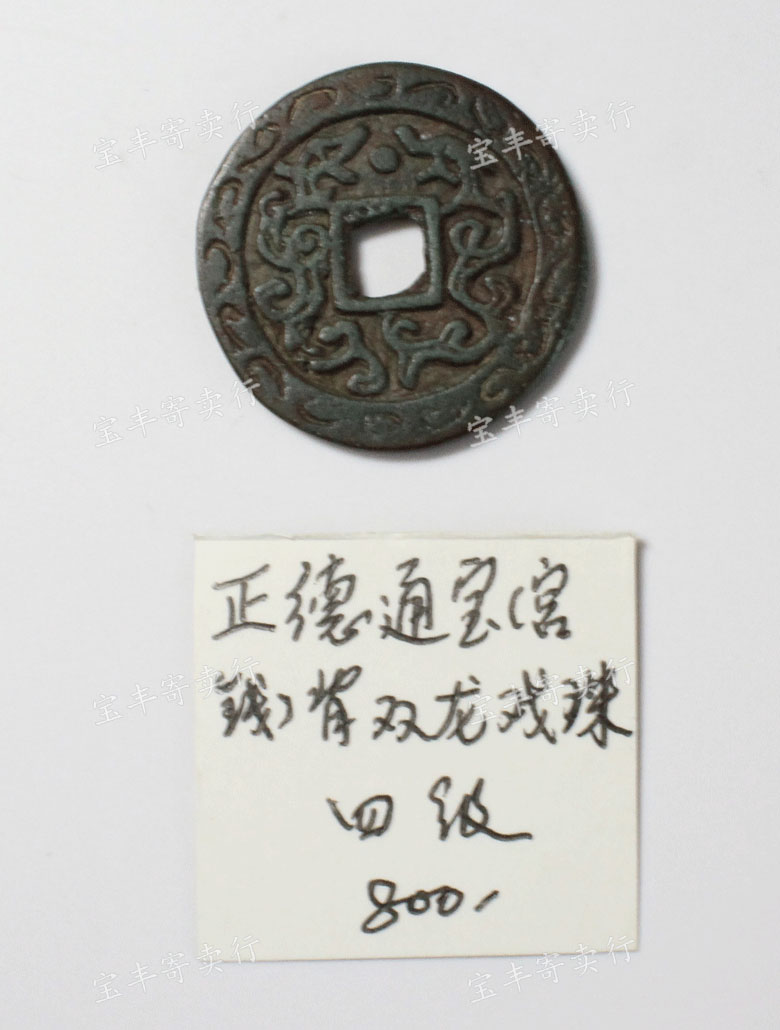 宝丰寄卖行 宝丰寄卖行
宝丰寄卖行 宝丰寄卖行
正德通宝(宫
钱)背双龙戏珠
宝丰寄卖行 宝丰寄卖行
四级
800.
宝丰寄卖行 宝丰寄卖行